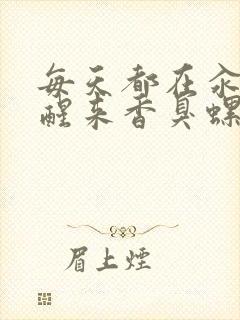 每天都在汆
醒来香臭螺
眉上煙